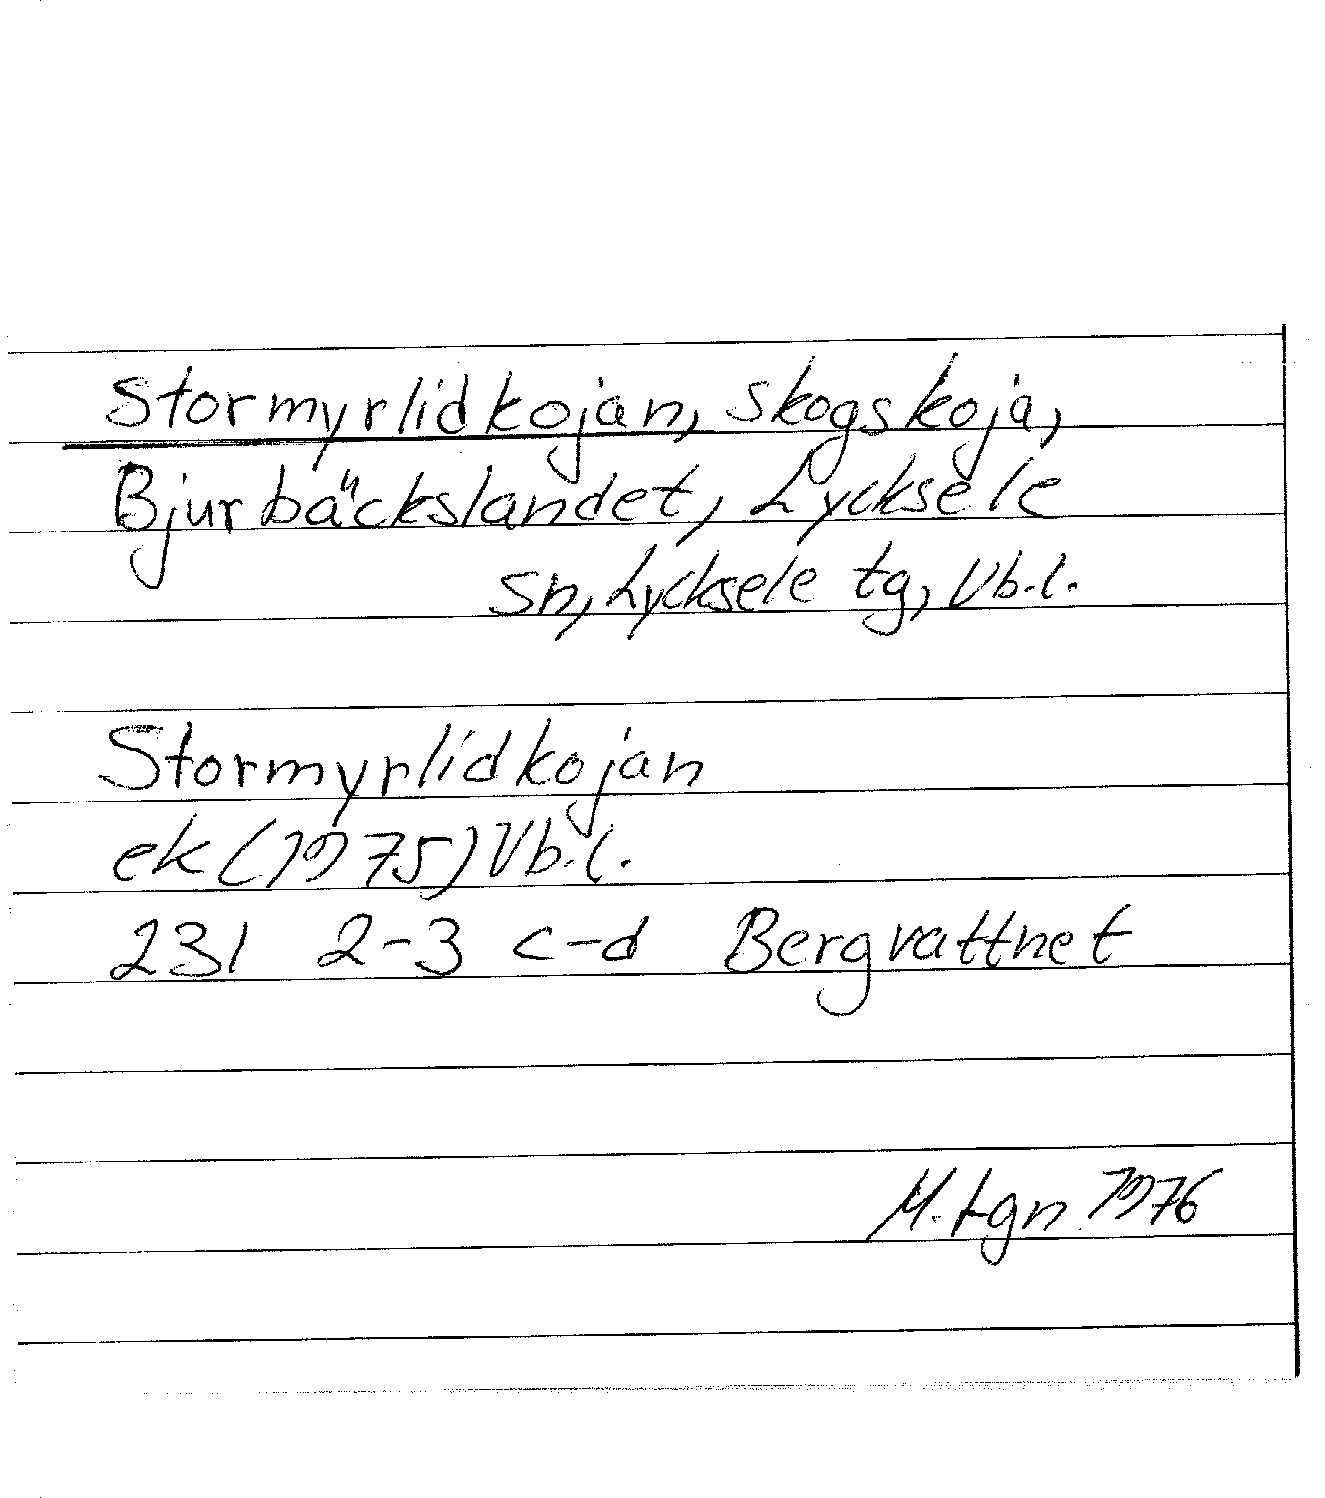 Stormyrlidkojan, skogskoja,
Bjurbäckslandet, Lycksele
sn, Lycksele tg, Vb.l.
Stormyrlidkojan
ek (1975) Vb.l.
231 2-3 c-d Bergvattnet
M. Lgn 1976